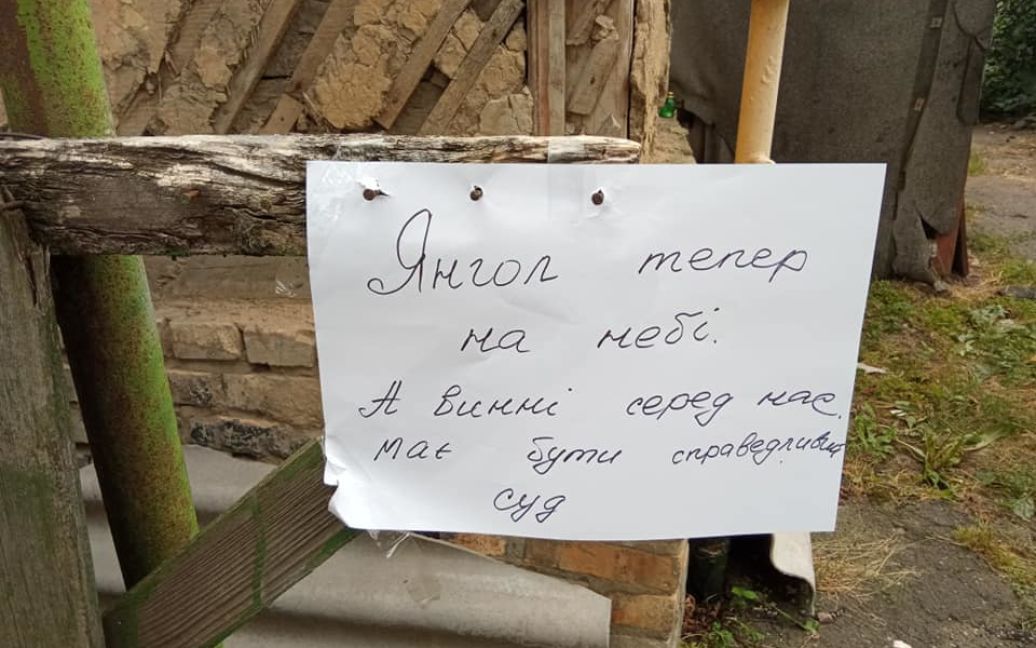 Янгол тепер
на небі.
А винні серед нас.
має бути справедливий
суд